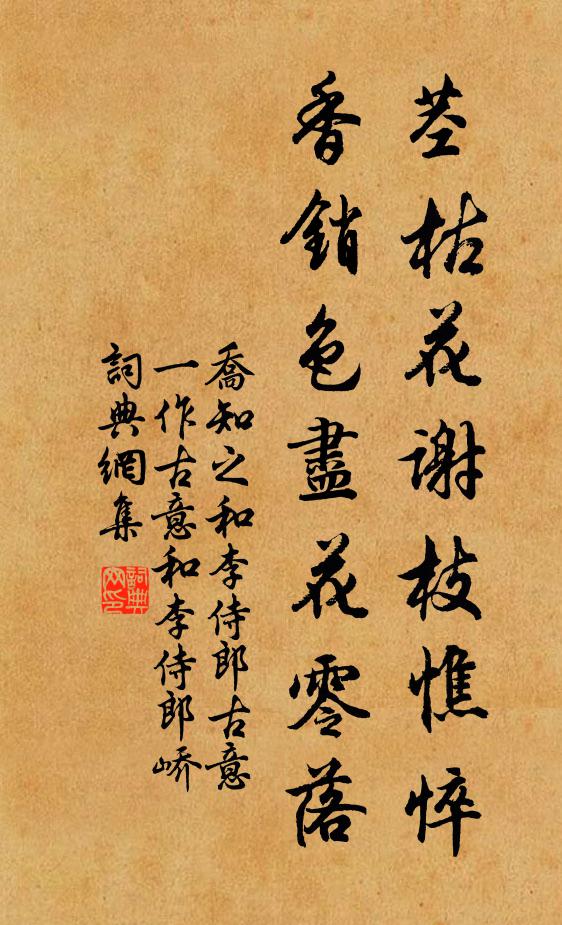 茎枯花謝枝憔悴
香銷色盡花零落
喬知之和李侍郎古意
一作古意和李侍郎嶠
詞典網集
詞典网印